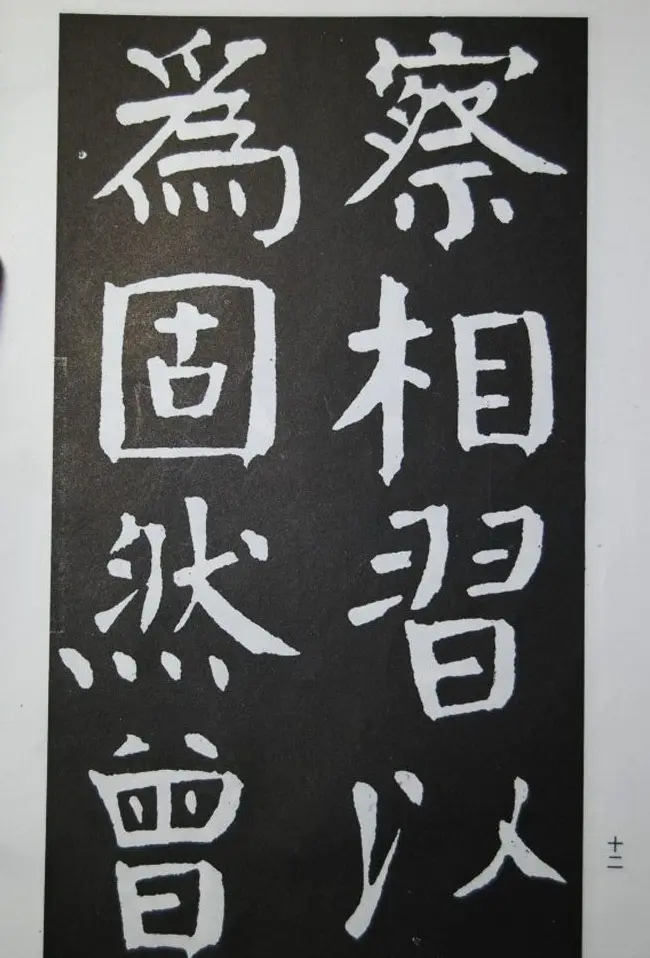 察相習以
為固然曾
十二